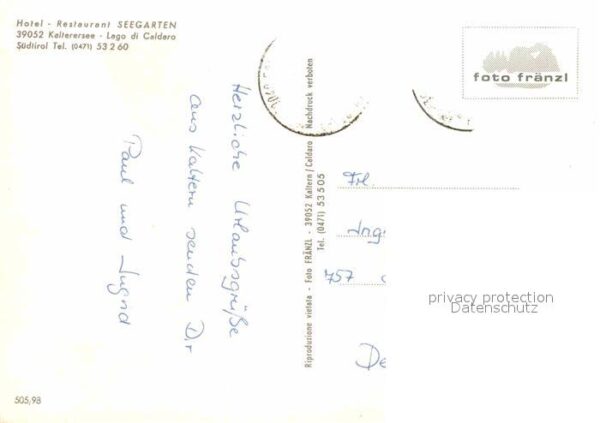 Hotel - Restaurant SEEGARTEN
39052 Kalterersee - Lago di Caldaro
Südtirol Tel. (0471) 53 2 60
foto fränzl
Herzliche Urlaubsgrüße
aus Kaltern senden Dir
Paul und Ingrid
Riproduzione vietata - Foto FRÄNZL - 39052 Kaltern / Caldaro - Nachdruck verboten
Tel. (0471) 53 5 05
Frl.
Ing
757
De
privacy protection
Datenschutz
505/98